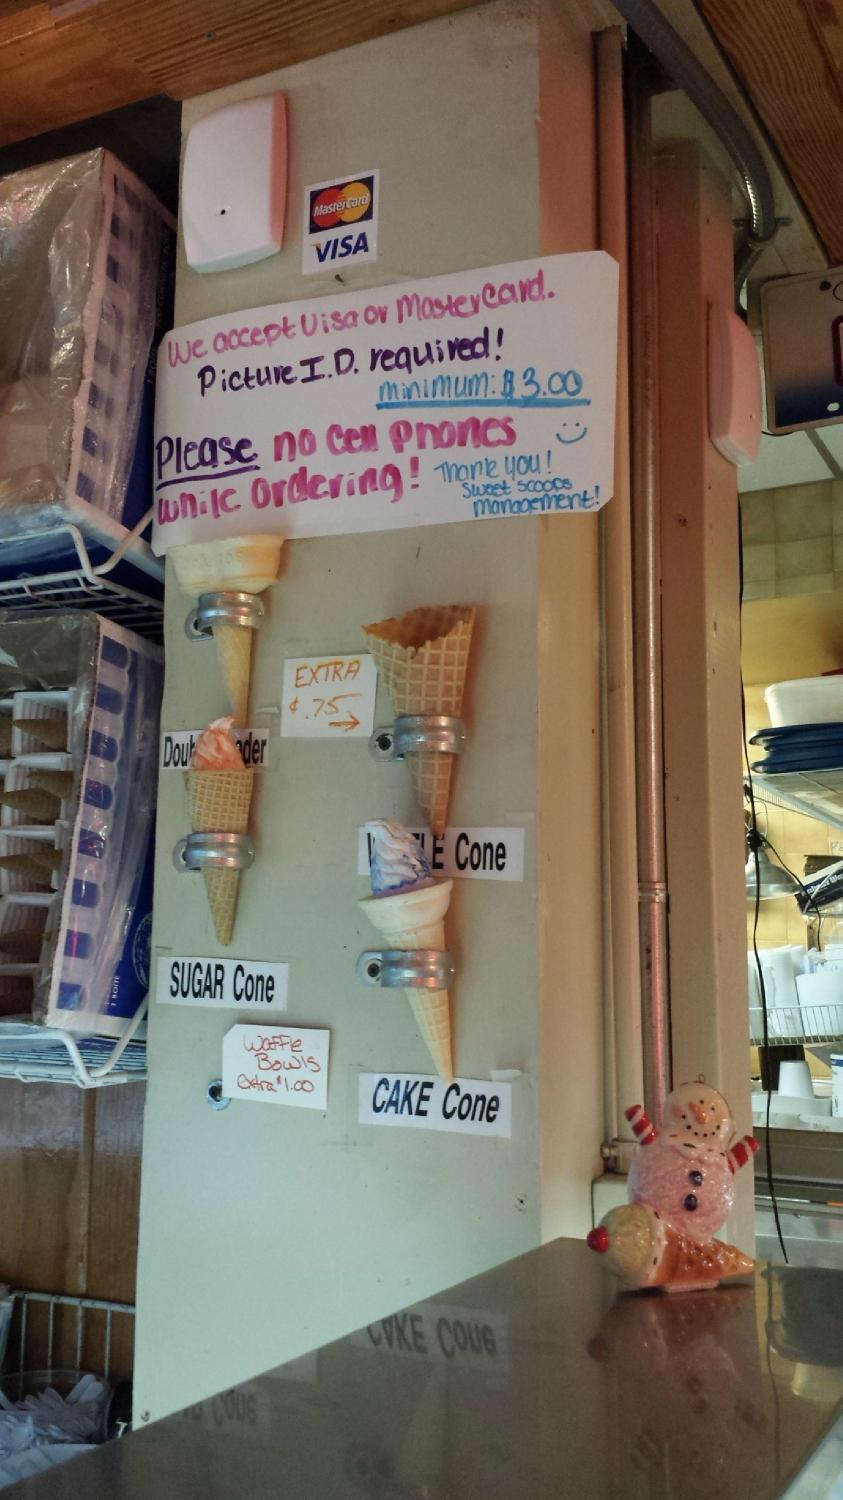 MasterCard
VISA
We accept Visa or MasterCard.
Picture I.D. required!
minimum: $3.00
Please no cell phones
while ordering!
Thank you!
Sweet scoops
management!
EXTRA
¢.75
Cone
SUGAR Cone
Waffle
Bowls
extra $1.00
CAKE Cone